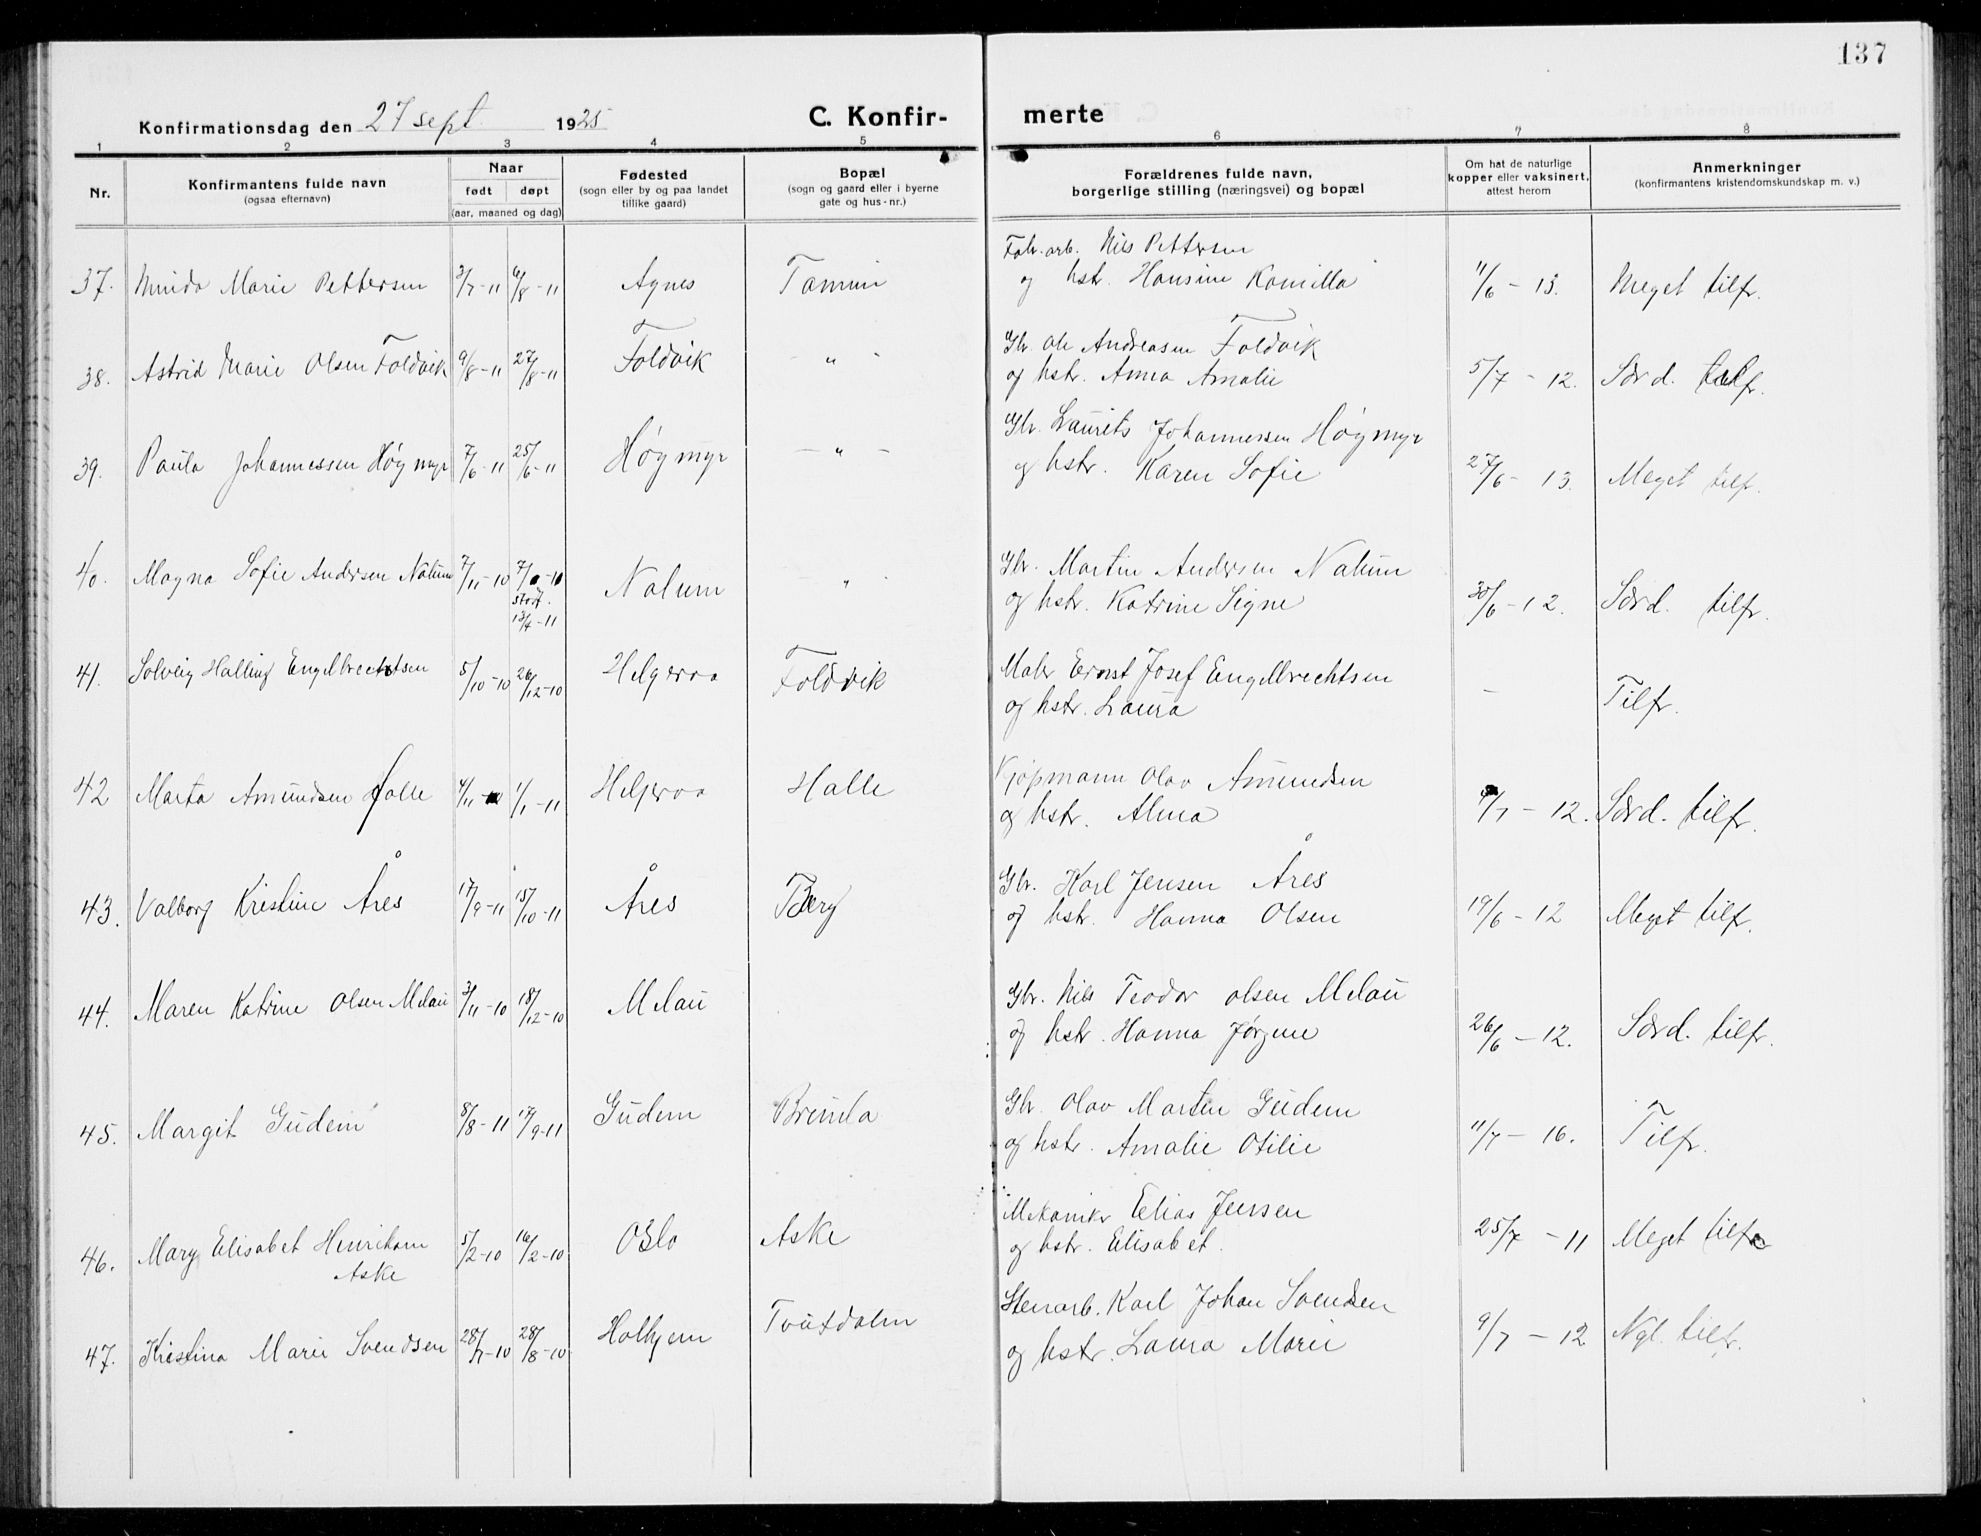 137
Konfirmationsdag den 27 sept. 1925 C. Konfir- merte
1 2 3 4 5 6 7 8
Nr. Konfirmantens fulde navn (ogsaa efternavn) Naar født døpt (aar, maaned og dag) Fødested (sogn eller by og paa landet tillike gaard) Bopæl (sogn og gaard eller i byerne gate og hus-nr.) Forældrenes fulde navn, borgerlige stilling (næringsvei) og bopæl Om hat de naturlige kopper eller vaksinert, attest herom Anmerkninger (konfirmantens kristendomskundskap m. v.)
Fabr. arb. Nils Pettersen
37. Minda Marie Pettersen 3/7-11 6/8-11 Agnes Tamin og hstr. Hansine Kamilla 11/6 - 13. Meget tilfr.
Gbr. Ole Andreasen Foldvik
38. Astrid Marie Olsen Foldvik 9/8-11 27/8-11 Foldvik - " - og hstr. Anna Amalie 5/7 - 12. Særd. tilfr.
Gbr. Laurits Johannessen Høgmyr
39. Paula Johannessen Høgmyr 7/6-11 25/6-11 Høgmyr - " - og hstr. Karen Sofie 27/6 - 13. Meget tilfr.
Gbr. Martin Andersen Nalum
40. Magna Sofie Andersen Nalum 7/11-10 7/ -10 Nalum " og hstr. Katrine Signe 30/6-12. Særd. tilfr.
stadf. 13/4-11
Maler Ernst Josef Engelbrechtsen
41. Solveig Halling Engelbrechtsen 5/10-10 26/12-10 Helgeroa Foldvik og hstr. Laura - Tilfr.
Kjøpmann Olav Amundsen
42 Marta Amundsen Halle 4/11-10 1/1-11 Helgeroa Halle og hstr. Alma /7 - 12. Særd. tilfr.
Gbr. Karl Jensen Åres
43. Valborg Kristine Åres 17/9-11 15/10-11 Åres Berg og hstr. Hanna Olsen 19/6 - 12 Meget tilfr.
Gbr. Nils Teodor Olsen Melau
44. Maren Katrine Olsen Melau 3/11-10 18/12-10 Melau og hstr. Hanna Jørgine 26/6 - 12. Særd. tilfr.
Gbr. Olav Martin Gudem
45. Margit Gudem 8/8-11 17/9-11 Gudem Brunla og hstr. Amalie Otilie 11/7 - 16. Tilfr.
Mekaniker Elias Jensen
46. Mary Elisabet Henriksen Aske 5/2-10 16/2-10 Oslo Aske og hstr. Elisabet. 25/7 - 11 Meget tilfr.
Stenarb. Karl Johan Svendsen
47. Kristina Marie Svendsen 28/7-10 28/8-10 Holhjem Tvitdalen og hstr. Laura Marie 9/7 - 12 Ngl. tilfr.